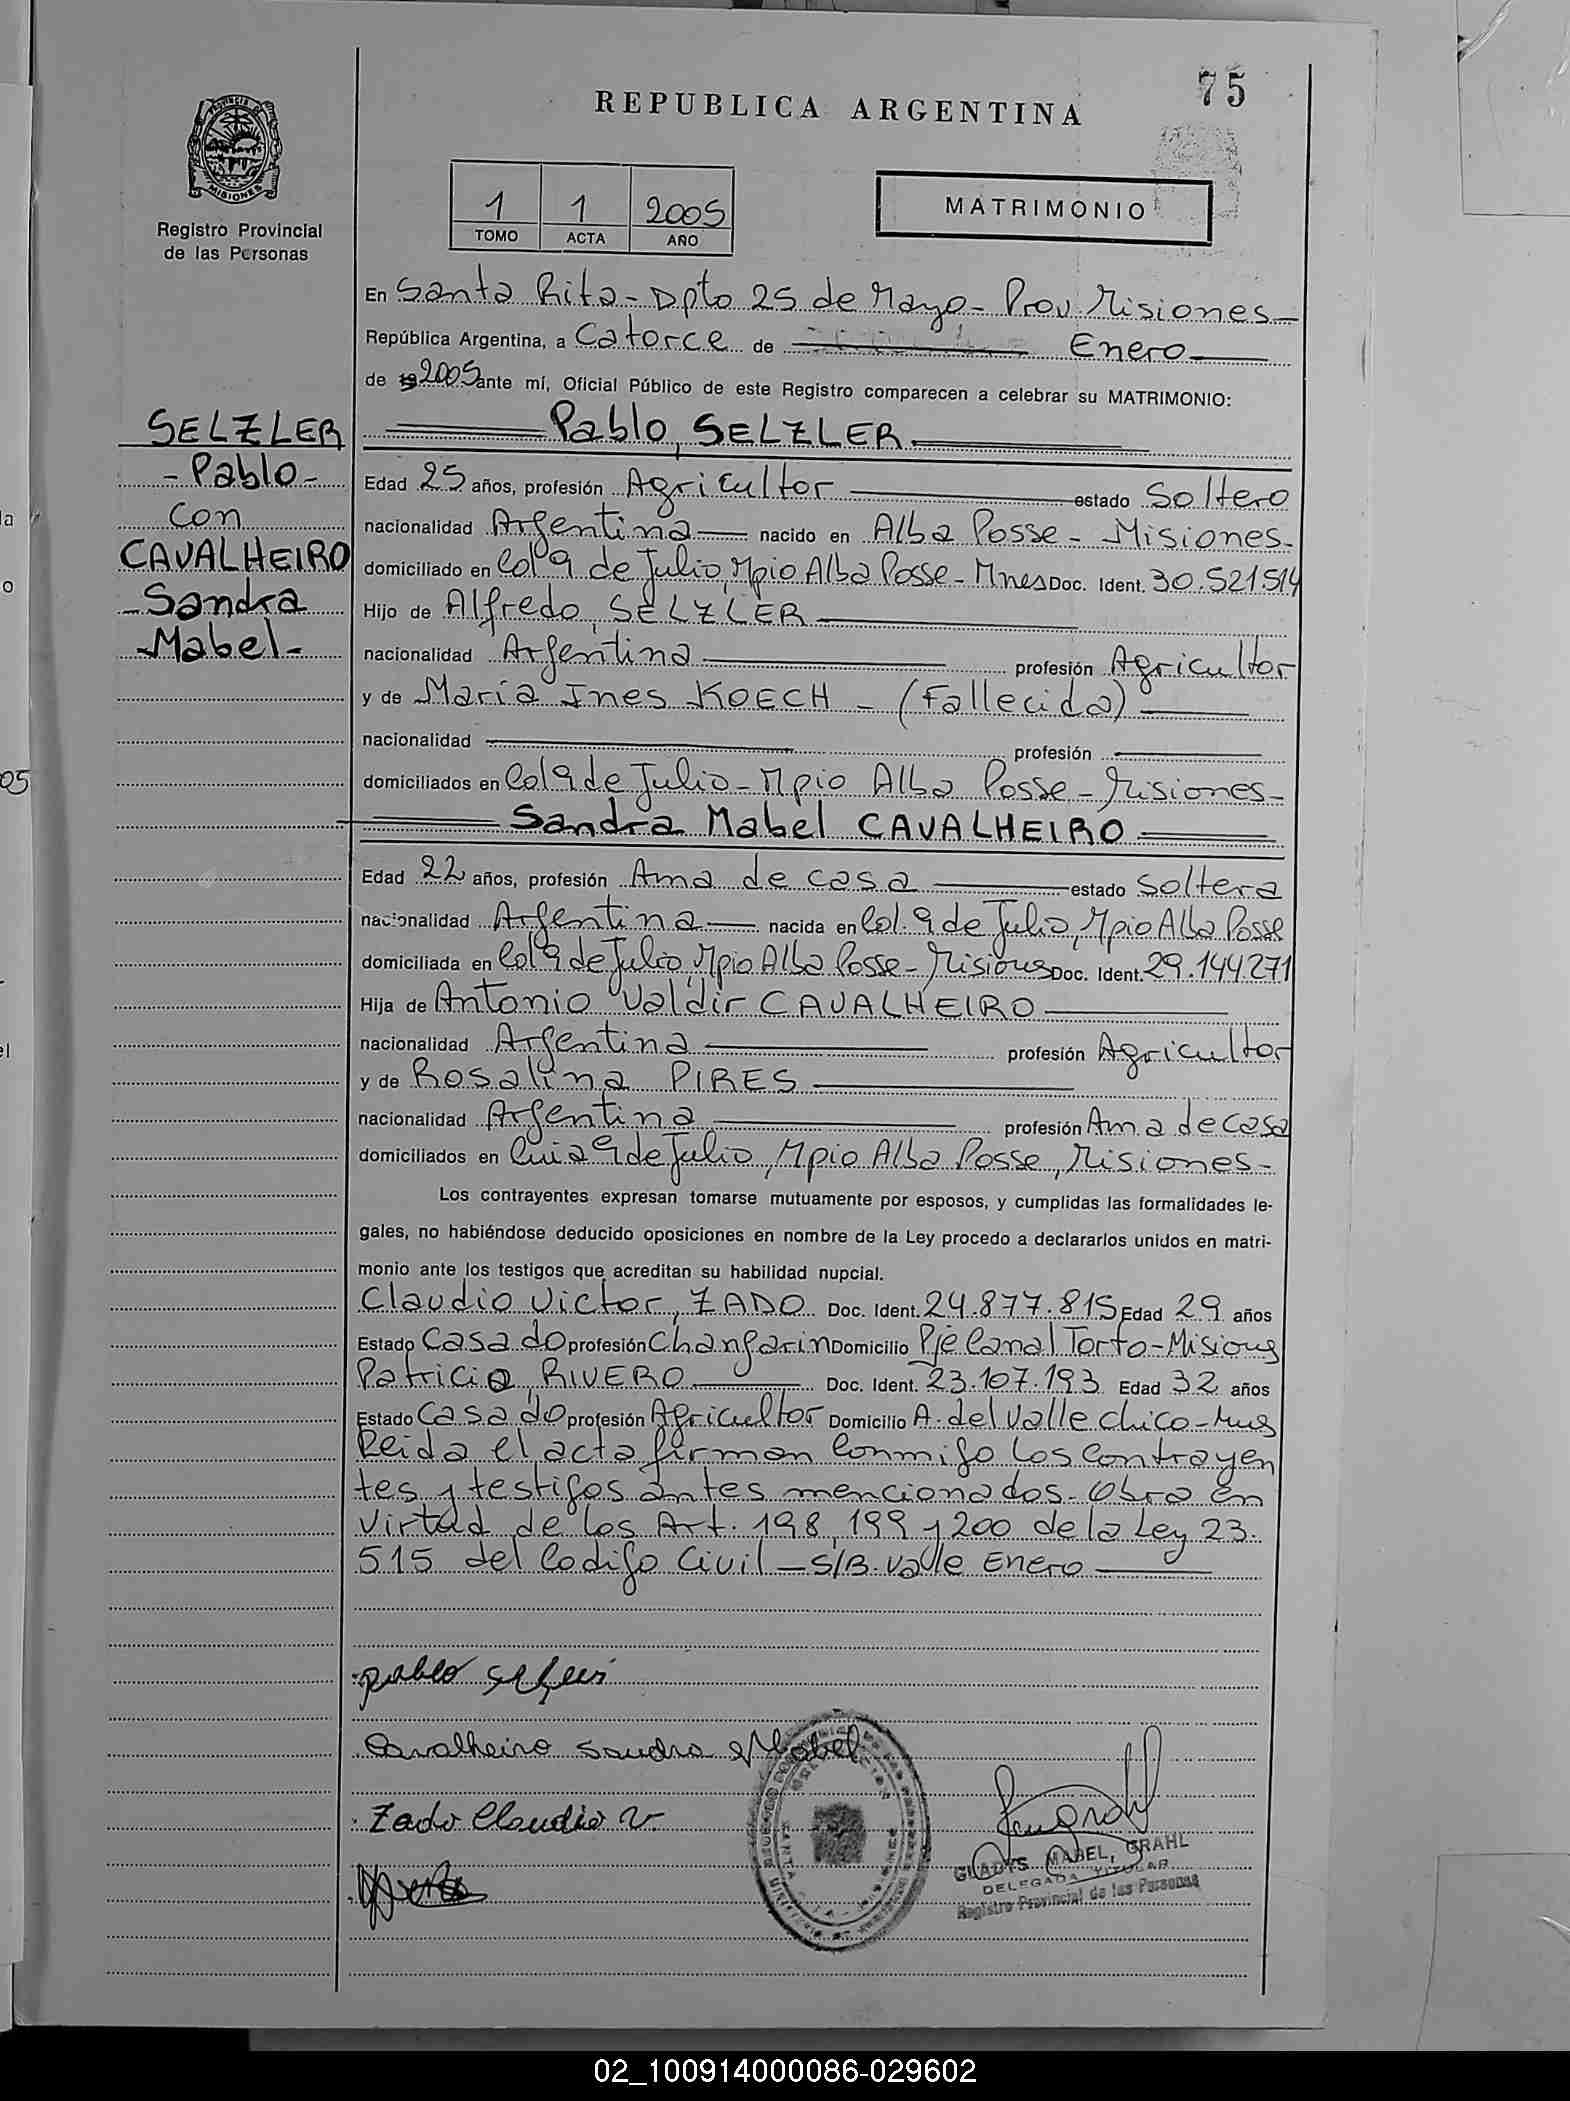 75
REPUBLICA ARGENTINA
MISIONES
Registro Provincial
de las Personas
1 1 2005
TOMO ACTA AÑO
MATRIMONIO
En Santa Rita - Dpto 25 de Mayo - Prov. Misiones -
República Argentina, a Catorce de Enero
de 19 2005 ante mí, Oficial Público de este Registro comparecen a celebrar su MATRIMONIO:
SELZLER
- Pablo -
con
CAVALHEIRO
- Sandra
- Mabel -
Pablo, SELZLER
Edad 25 años, profesión Agricultor estado Soltero
nacionalidad Argentina nacido en Alba Posse - Misiones -
domiciliado en Col 9 de Julio, Mpio Alba Posse - Mnes Doc. Ident. 30.521.514
Hijo de Alfredo, SELZLER
nacionalidad Argentina profesión Agricultor
y de Maria Ines KOECH - (Fallecida)
nacionalidad profesión
domiciliados en Col 9 de Julio - Mpio Alba Posse - Misiones -
Sandra Mabel CAVALHEIRO
Edad 22 años, profesión Ama de casa estado Soltera
nacionalidad Argentina nacida en Col. 9 de Julio, Mpio Alba Posse
domiciliada en Col 9 de Julio, Mpio Alba Posse - Misiones Doc. Ident. 29.144.271
Hija de Antonio Valdir CAVALHEIRO
nacionalidad Argentina profesión Agricultor
y de Rosalina PIRES
nacionalidad Argentina profesión Ama de casa
domiciliados en 9 de Julio, Mpio Alba Posse, Misiones -
Los contrayentes expresan tomarse mutuamente por esposos, y cumplidas las formalidades le-
gales, no habiéndose deducido oposiciones en nombre de la Ley procedo a declararlos unidos en matri-
monio ante los testigos que acreditan su habilidad nupcial.
Claudio Victor, ZADO Doc. Ident. 24.877.815 Edad 29 años
Estado Casado profesión Changarin Domicilio Pje Canal Torto - Misiones
Patricio, RIVERO Doc. Ident. 23.107.193 Edad 32 años
Estado Casado profesión Agricultor Domicilio A. del Valle chico - Mnes
Leida el acta firman conmigo los contrayen
tes y testigos antes mencionados - Obra en
virtud de los Art. 198, 199 y 200 de la Ley 23.
515 del Codigo Civil - S/B. Valle Enero
pablo
Cavalheiro Sandra Mabel
Zado Claudio V.
GLADYS MABEL, GRAHL
DELEGADA TITULAR
Registro Provincial de las Personas
02_100914000086-029602